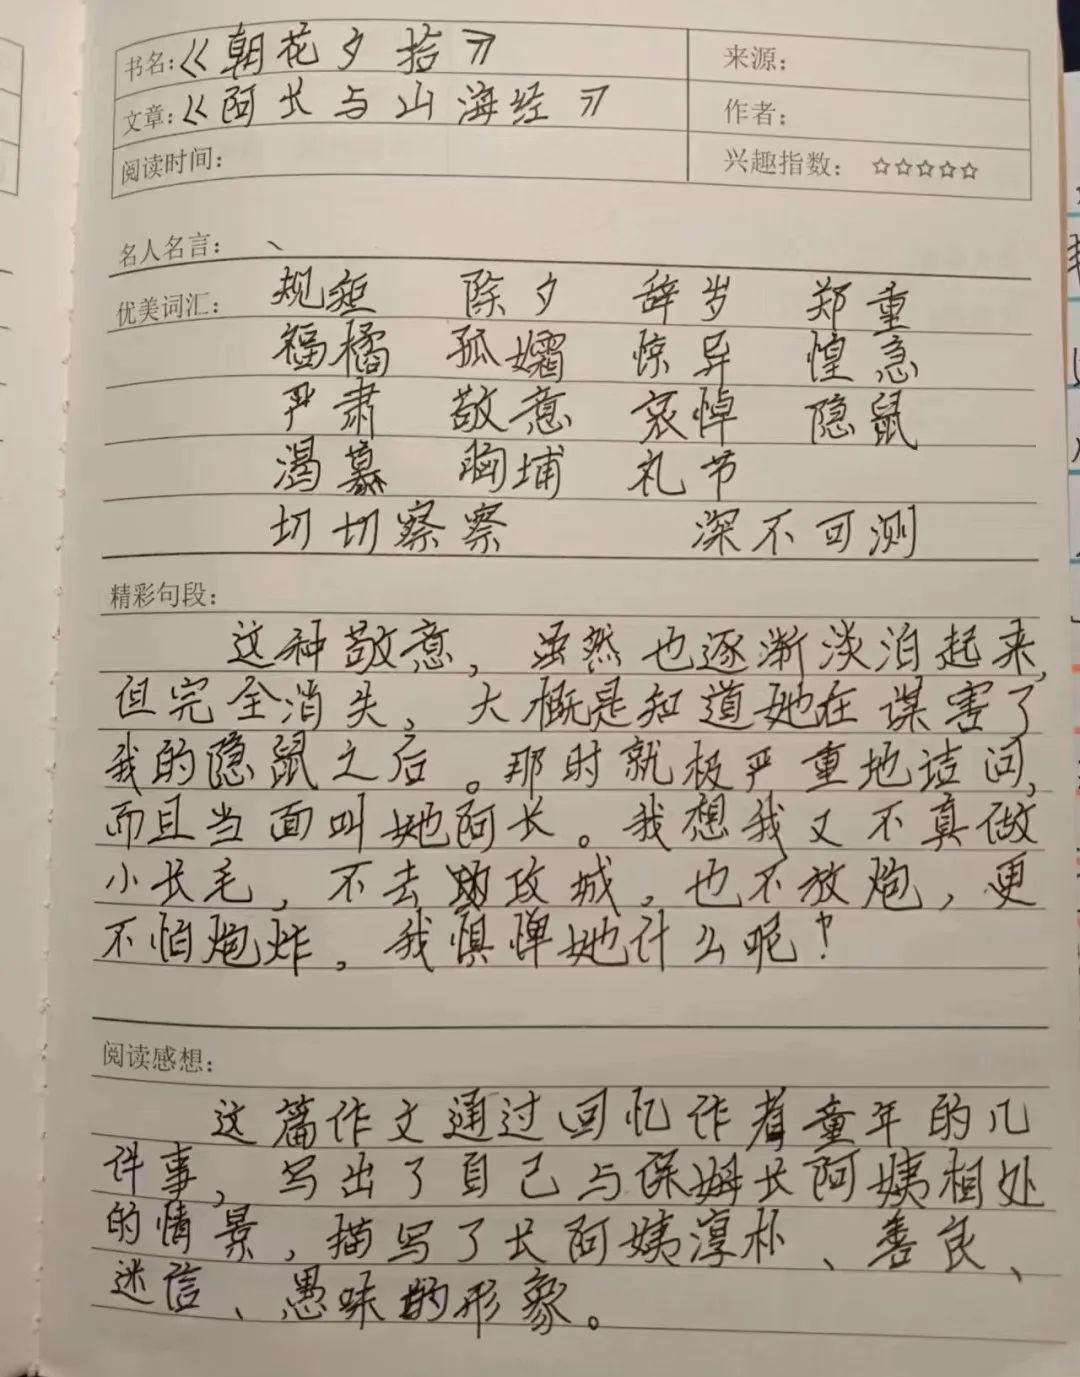 书名:《朝花夕拾》
来源:
文章:《阿长与山海经》
作者:
阅读时间:
兴趣指数: ☆☆☆☆☆
名人名言: 、
优美词汇: 规矩 除夕 辞岁 郑重
福橘 孤孀 惊异 惶急
严肃 敬意 哀悼 隐鼠
渴慕 胸埔 礼节
切切察察 深不可测
精彩句段:
这种敬意，虽然也逐渐淡泊起来,
但完全消失，大概是知道她在谋害了
我的隐鼠之后。那时就极严重地诘问,
而且当面叫她阿长。我想我又不真做
小长毛，不去攻城，也不放炮，更
不怕炮炸，我惧惮她什么呢！
阅读感想:
这篇作文通过回忆作者童年的几
件事，写出了自己与保姆长阿姨相处
的情景，描写了长阿姨淳朴、善良、
迷信、愚昧的形象。